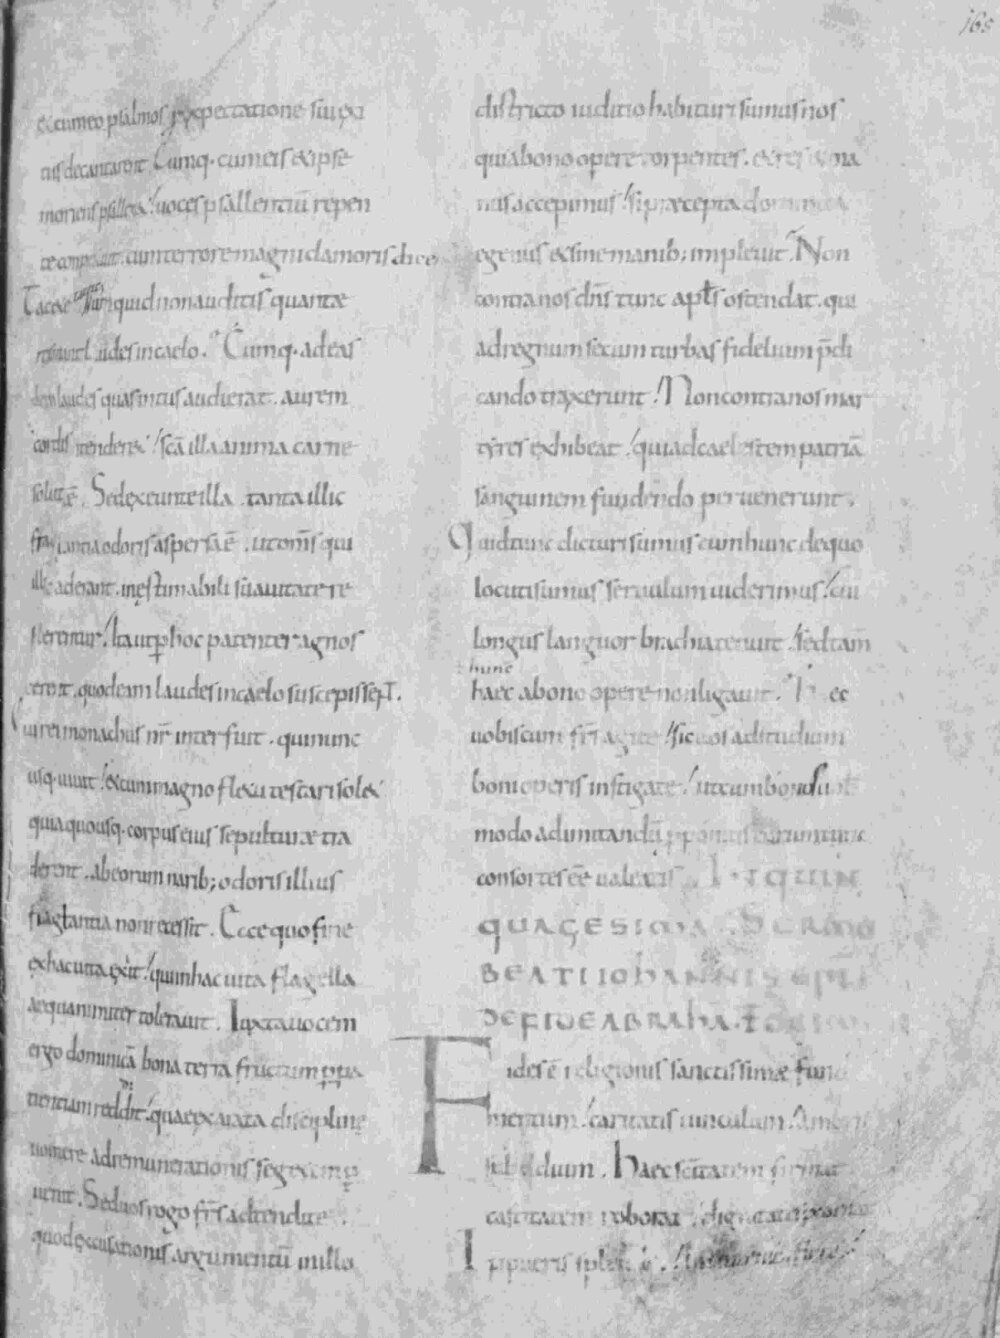 165
et cum eo psalmos pro expectatione sui exi
tus decantarent. Cumq. cum eis et ipse
moriens psalleret. uoces psallentiū repen
te conpescuit. cum terrore magni clamoris dicens
Tacete numquid non auditis quantae
resonent laudes in caelo. Cumq. ad eas
dem laudes quas intus audierat. aurem
cordis tenderet. scā illa anima carne
soluta ē. Sed exeunte illa. tanta illic
fraglantia odoris aspersa ē. ut omīs qui
illic aderant. inestimabili suauitate re
plerentur. Ita ut p hoc patenter agnos
cerent. quod eam laudes in caelo suscepissent.
Cui rei monachus nr̄ interfuit. qui nunc
usq. uiuit. et cum magno fletu testari solet
quia quousq. corpus eius sepulturae tra
derent. ab eorum narib; odoris illius
fraglantia non recessit. Ecce quo fine
ex hac uita exiit. qui in hac uita flagella
aequanimiter tolerauit. Iuxta uocem
ergo dominicā bona terra fructum p pa
tientiam reddidit. quae exarata disciplinę
uomere ad remunerationis segetem
uenit. Sed uos rogo frs̄ adtendite.
quod excusationis argumentū in illo
districto iuditio habituri sumus nos
qui a bono opere torpentes. et res et ma
nus accepimus. si praecepta dominica
egenus et sine manib; impleuit. Non
contra nos dn̄s tunc aptl̄s ostendat. qui
ad regnum secum turbas fidelium p̄di
cando traxerunt. Non contra nos mar
tyres exhibeat. qui ad caelestem patriā
sanguinem fundendo peruenerunt.
Quid tunc dicturi sumus cum hunc de quo
locuti sumus seruulum uiderimus. cui
longus languor brachia tenuit. sed tam
hunc
haec a bono opere non ligauit. Haec
uobiscum frs̄ agite. sic uos ad studium
boni operis instigate. ut cum bonos uobis
modo ad imitandū pponitis eorum tunc
consortes eē ualeatis. IN QUIN
QUAGESIMA. SERMO
BEATI IOHANNIS EPI
DE FIDE ABRAHĀ.
Fides ē religionis sanctissimae funda
mentum. caritatis uinculum. Amoris
subsidium. Haec scītatem firmat
castitatem roborat.